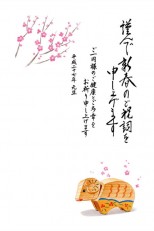 謹んで新春のご祝詞を
申し上げます
ご一同様のご健康とご多幸を
お祈り申し上げます
平成二十七年 元旦